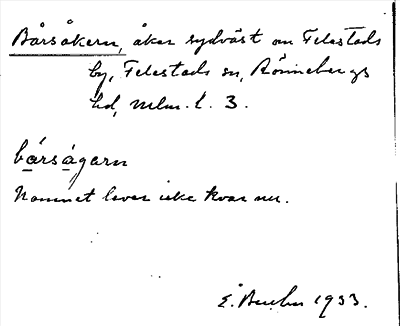 Bårsåkern, åker sydväst om Felestads
by, Felestads sn, Rönnebergs
hd, Mlm. l. 3.
bársågarn
Namnet lever icke kvar nu.
1933.